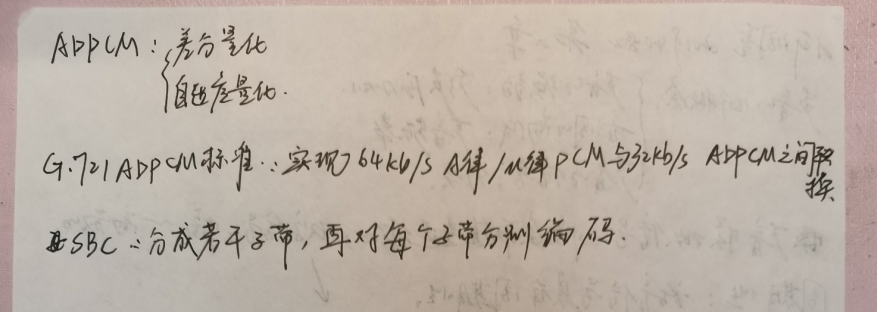 ADPCM：差分量化
自适应量化.
G.721 ADPCM标准：实现64kb/s A律/μ律PCM与32kb/s ADPCM之间转
换
SBC：分成若干子带，再对每个子带分别编码.